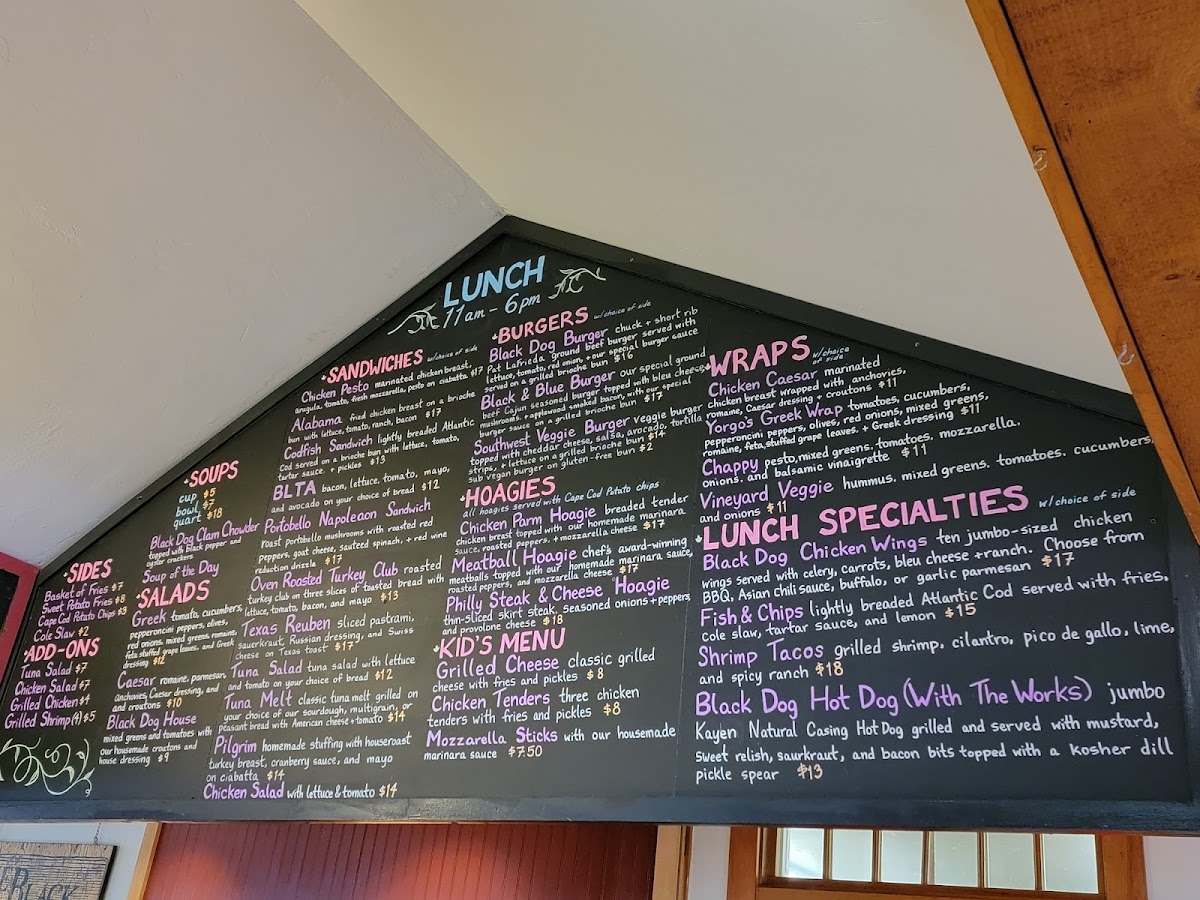 LUNCH
11am - 6pm
SOUPS
cup $5
bowl $7
quart $18
Black Dog Clam Chowder
topped with black pepper and
oyster crackers
Soup of the Day
SIDES
Basket of Fries $7
Sweet Potato Fries $8
Cape Cod Potato Chips $3
Cole Slaw $2
ADD-ONS
Tuna Salad $7
Chicken Salad $7
Grilled Chicken $4
Grilled Shrimp (4) $5
SALADS
Greek tomato, cucumbers,
pepperoncini peppers, olives,
red onions, mixed greens, romaine,
feta, stuffed grape leaves, and Greek
dressing $12
Caesar romaine, parmesan,
anchovies, Caesar dressing, and
and croutons $10
Black Dog House
mixed greens and tomatoes with
our housemade croutons and
house dressing $9
SANDWICHES w/choice of side
Chicken Pesto marinated chicken breast,
arugula, tomato, fresh mozzarella, pesto on ciabatta $17
Alabama fried chicken breast on a brioche
bun with lettuce, tomato, ranch, bacon $17
Codfish Sandwich lightly breaded Atlantic
Cod served on a brioche bun with lettuce, tomato,
tartar sauce, + pickles $13
BLTA bacon, lettuce, tomato, mayo,
and avocado on your choice of bread $12
Portobello Napoleaon Sandwich
roast portobello mushrooms with roasted red
peppers, goat cheese, sauteed spinach, + red wine
reduction drizzle $17
Oven Roasted Turkey Club roasted
turkey club on three slices of toasted bread with
lettuce, tomato, bacon, and mayo $13
Texas Reuben sliced pastrami,
sauerkraut, Russian dressing, and Swiss
cheese on Texas toast $17
Tuna Salad tuna salad with lettuce
and tomato on your choice of bread $12
Tuna Melt classic tuna melt grilled on
your choice of our sourdough, multigrain, or
peasant bread with American cheese + tomato $14
Pilgrim homemade stuffing with houseroast
turkey breast, cranberry sauce, and mayo
on ciabatta $14
Chicken Salad with lettuce & tomato $14
BURGERS w/choice of side
Black Dog Burger chuck + short rib
Pat LaFrieda ground beef burger served with
lettuce, tomato, red onion, + our special burger sauce
served on a grilled brioche bun $16
Black & Blue Burger our special ground
beef Cajun seasoned burger topped with bleu cheese,
mushroom, + applewood smoked bacon, with our special
burger sauce on a grilled brioche bun $17
Southwest Veggie Burger veggie burger
topped with cheddar cheese, salsa, avocado, tortilla
strips, + lettuce on a grilled brioche bun $14
sub vegan burger on gluten-free bun $2
HOAGIES
all hoagies served with Cape Cod Potato chips
Chicken Parm Hoagie breaded tender
chicken breast topped with our homemade marinara
sauce, roasted peppers, + mozzarella cheese $17
Meatball Hoagie chef's award-winning
meatballs topped with our homemade marinara sauce,
roasted peppers, and mozzarella cheese $17
Philly Steak & Cheese Hoagie
thin-sliced skirt steak, seasoned onions + peppers,
and provolone cheese $18
KID'S MENU
Grilled Cheese classic grilled
cheese with fries and pickles $8
Chicken Tenders three chicken
tenders with fries and pickles $8
Mozzarella Sticks with our housemade
marinara sauce $7.50
WRAPS w/choice
of side
Chicken Caesar marinated
chicken breast wrapped with anchovies,
romaine, Caesar dressing + croutons $11
Yorgo's Greek Wrap tomatoes, cucumbers,
pepperoncini peppers, olives, red onions, mixed greens,
romaine, feta, stuffed grape leaves, + Greek dressing $11
Chappy pesto, mixed greens, tomatoes, mozzarella,
onions, and balsamic vinaigrette $11
Vineyard Veggie hummus, mixed greens, tomatoes, cucumbers,
and onions $11
LUNCH SPECIALTIES w/choice of side
Black Dog Chicken Wings ten jumbo-sized chicken
wings served with celery, carrots, bleu cheese + ranch. Choose from
BBQ, Asian chili sauce, buffalo, or garlic parmesan $17
Fish & Chips lightly breaded Atlantic Cod served with fries,
cole slaw, tartar sauce, and lemon $15
Shrimp Tacos grilled shrimp, cilantro, pico de gallo, lime,
and spicy ranch $18
Black Dog Hot Dog (With The Works) jumbo
Kayen Natural Casing Hot Dog grilled and served with mustard,
sweet relish, saurkraut, and bacon bits topped with a kosher dill
pickle spear $13
BLACK